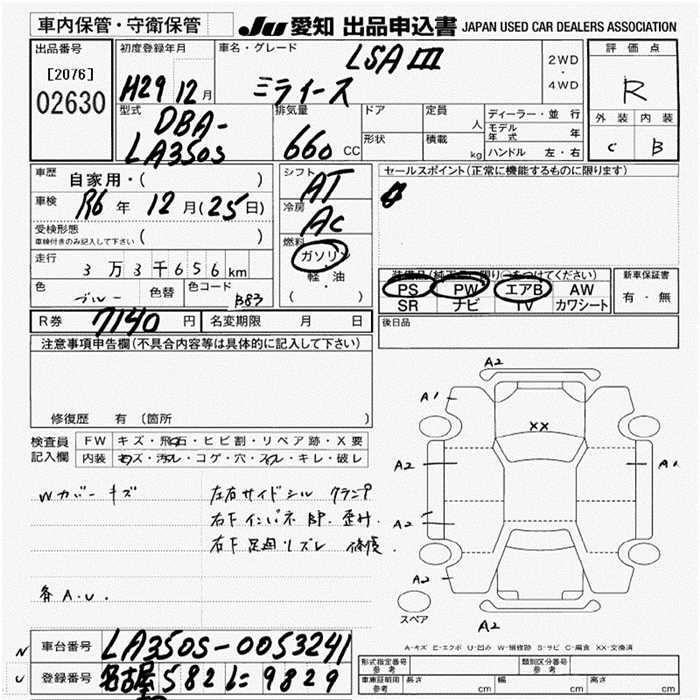 車内保管・守衛保管 JU 愛知 出品申込書 JAPAN USED CAR DEALERS ASSOCIATION
出品番号
[2076]
02630
初度登録年月
H29 12月
車名・グレード
LSA III
ミライース
2WD
・
4WD
評価点
R
外装 内装
C B
型式
DBA-
LA350S
排気量
660 CC
ドア
形状
定員
人
積載
kg
ディーラー・並行
モデル年式 年
ハンドル 左・右
車歴
自家用・( )
車検 R6年 12月(25日)
受検形態
車検付きのみ記入して下さい ( )
走行 3万3千656km
色 ブルー 色替 色コード B83
シフト AT
冷房 AC
燃料
ガソリン
軽・油
( )
セールスポイント(正常に機能するものに限ります)
装備品(純正品に限り○をつけてください)
PS PW エアB AW
SR ナビ TV カワシート
新車保証書
有・無
R券 7140円 名変期限 月 日
後日品
注意事項申告欄(不具合内容等は具体的に記入して下さい)
修復歴 有 (箇所
検査員
記入欄
FW キズ・飛石・ヒビ割・リペア跡・X要
内装 キズ・汚れ・コゲ・穴・スレ・キレ・破レ
Wカバーキズ
左右サイドシル クランプ
右下インパネ BP. 歪み.
右下足廻りズレ 修復.
各A.U.
A2
A1
XX
A2
A1
A2
A2
A2
スペア
A-キズ E-エクボ U-凹み W-補修跡 S-サビ C-腐食 XX-交換済
N
U
車台番号 LA350S-0053241
登録番号 名古屋 582 に 9829
形式指定番号
参考
類別区分番号
参考
車庫証明用
参考
長さ cm
幅 cm
高さ cm